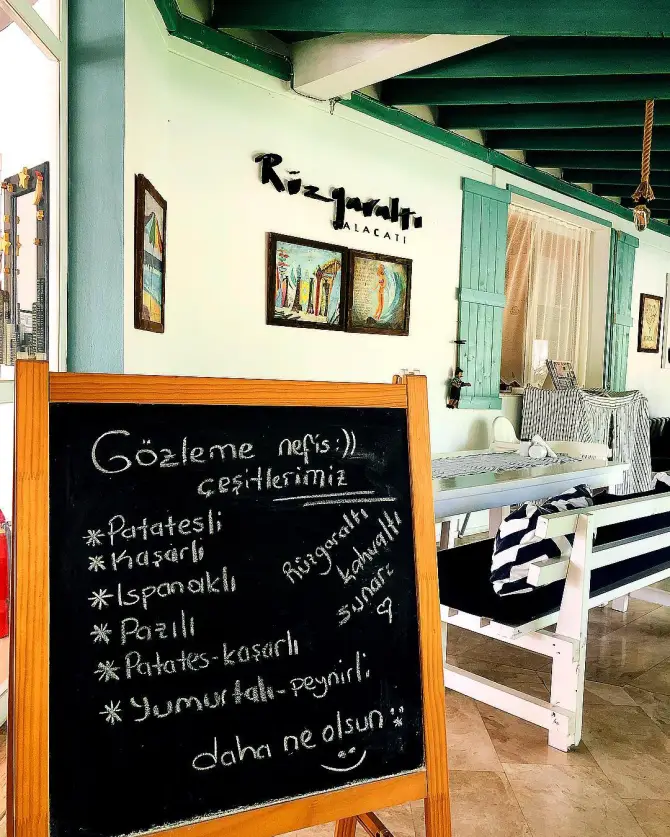 Rüzgaraltı
ALAÇATI
Gözleme nefis:))
çeşitlerimiz
*Patatesli
*Kaşarlı
*Ispanaklı
*Pazılı
*Patates-kaşarlı
*Yumurtalı-peynirli
Rüzgaraltı
kahvaltı
sunar
daha ne olsun